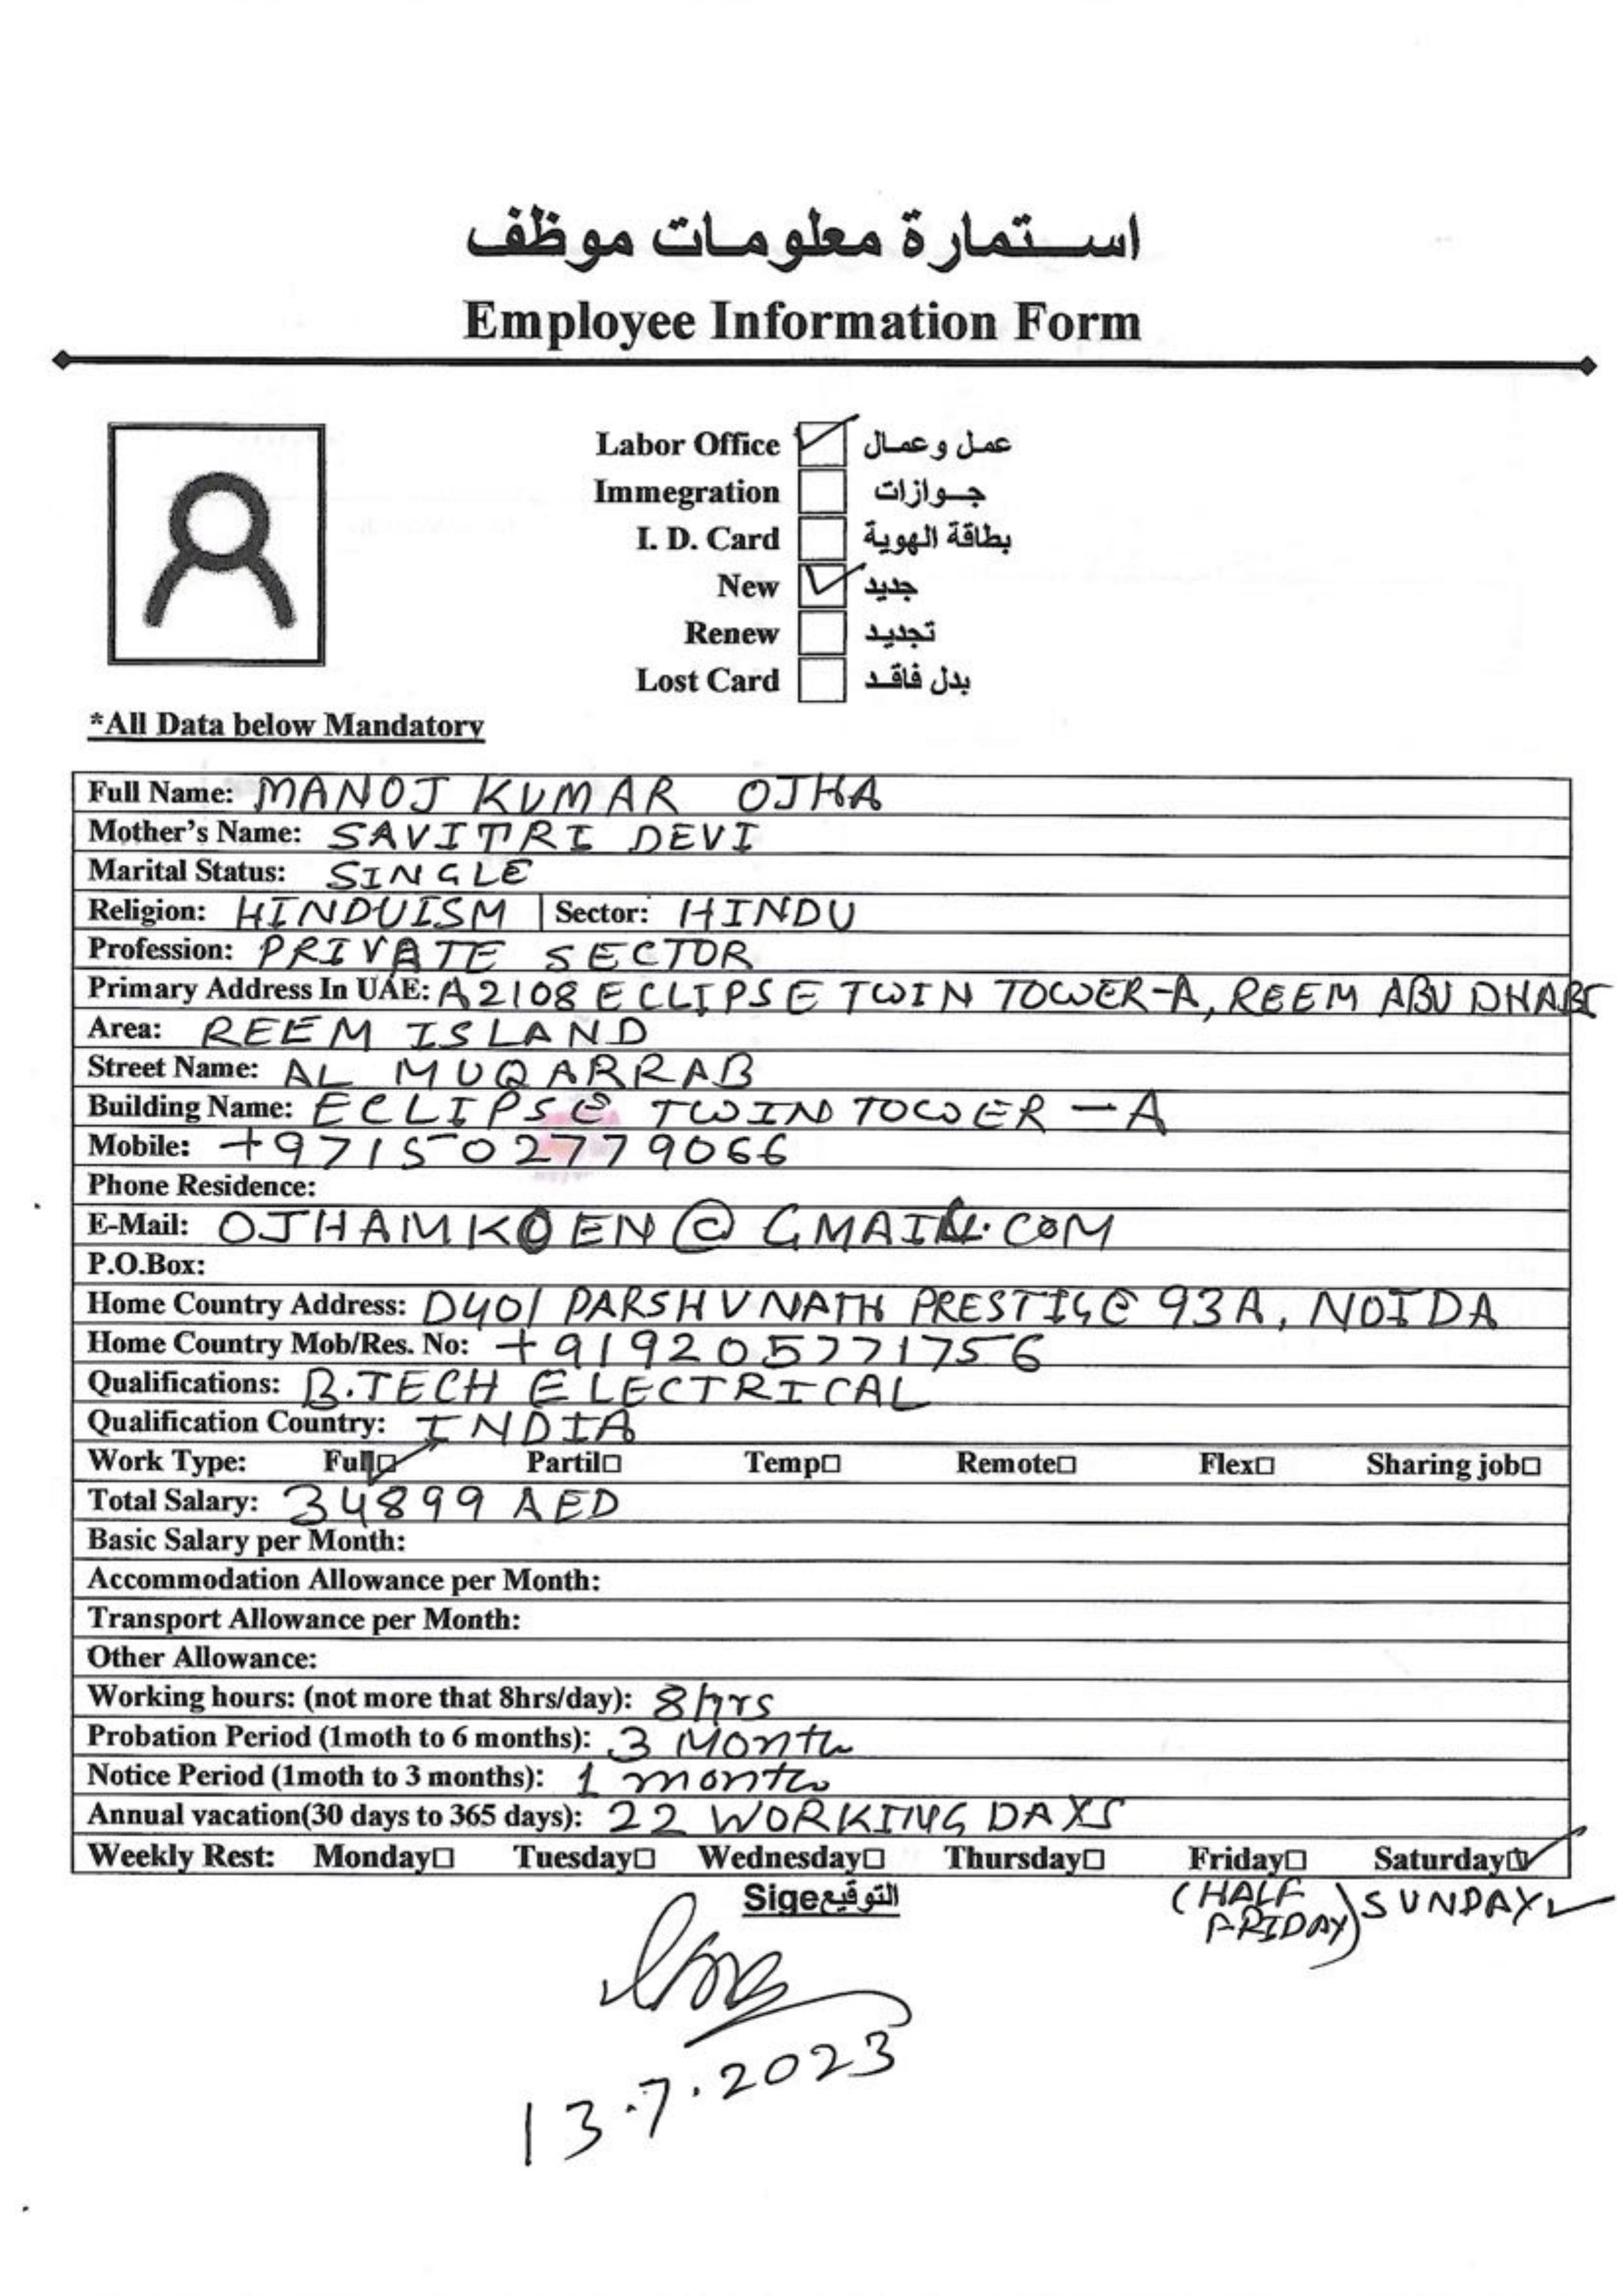 استمارة معلومات موظف
Employee Information Form
Labor Office عمل وعمال
Immegration جوازات
I. D. Card بطاقة الهوية
New جديد
Renew تجديد
Lost Card بدل فاقد
*All Data below Mandatory
Full Name: MANOJ KUMAR OJHA
Mother's Name: SAVITRI DEVI
Marital Status: SINGLE
Religion: HINDUISM Sector: HINDU
Profession: PRIVATE SECTOR
Primary Address In UAE: A2108 ECLIPSE TWIN TOWER-A, REEM ABU DHABI
Area: REEM ISLAND
Street Name: AL MUQARRAB
Building Name: ECLIPSE TWIN TOWER - A
Mobile: +971502779066
Phone Residence:
E-Mail: OJHAMKOEN@GMAIL.COM
P.O.Box:
Home Country Address: D401 PARSHVNATH PRESTIGE 93A, NOIDA
Home Country Mob/Res. No: +919205771756
Qualifications: B.TECH ELECTRICAL
Qualification Country: INDIA
Work Type: Full□ Partil□ Temp□ Remote□ Flex□ Sharing job□
Total Salary: 34899 AED
Basic Salary per Month:
Accommodation Allowance per Month:
Transport Allowance per Month:
Other Allowance:
Working hours: (not more that 8hrs/day): 8hrs
Probation Period (1moth to 6 months): 3 Month
Notice Period (1moth to 3 months): 1 month
Annual vacation(30 days to 365 days): 22 WORKING DAYS
Weekly Rest: Monday□ Tuesday□ Wednesday□ Thursday□ Friday□ Saturday□
Sigeالتوقيع
(HALF FRIDAY) SUNDAY
13.7.2023